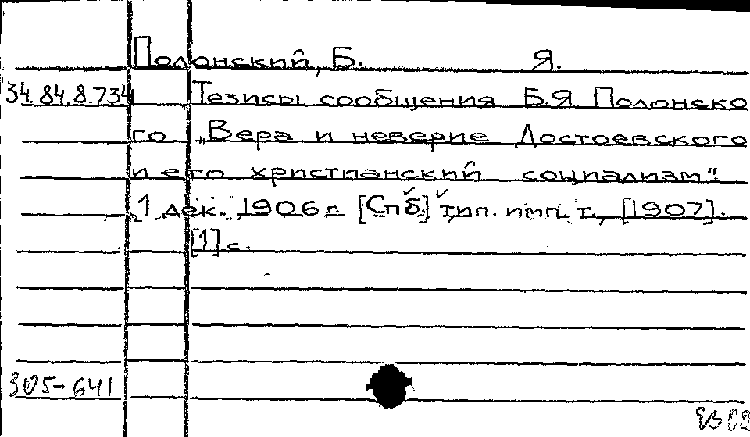 Полонский, Б. Я.
34.84.8.734 Тезисы сообщения Б.Я Полонско
го „Вера и неверие Достоевского
и его христианский социализм".
[1 дек. 1906 г. [Спб.] тип. імп. т., [1907].
[1] с.
305-641